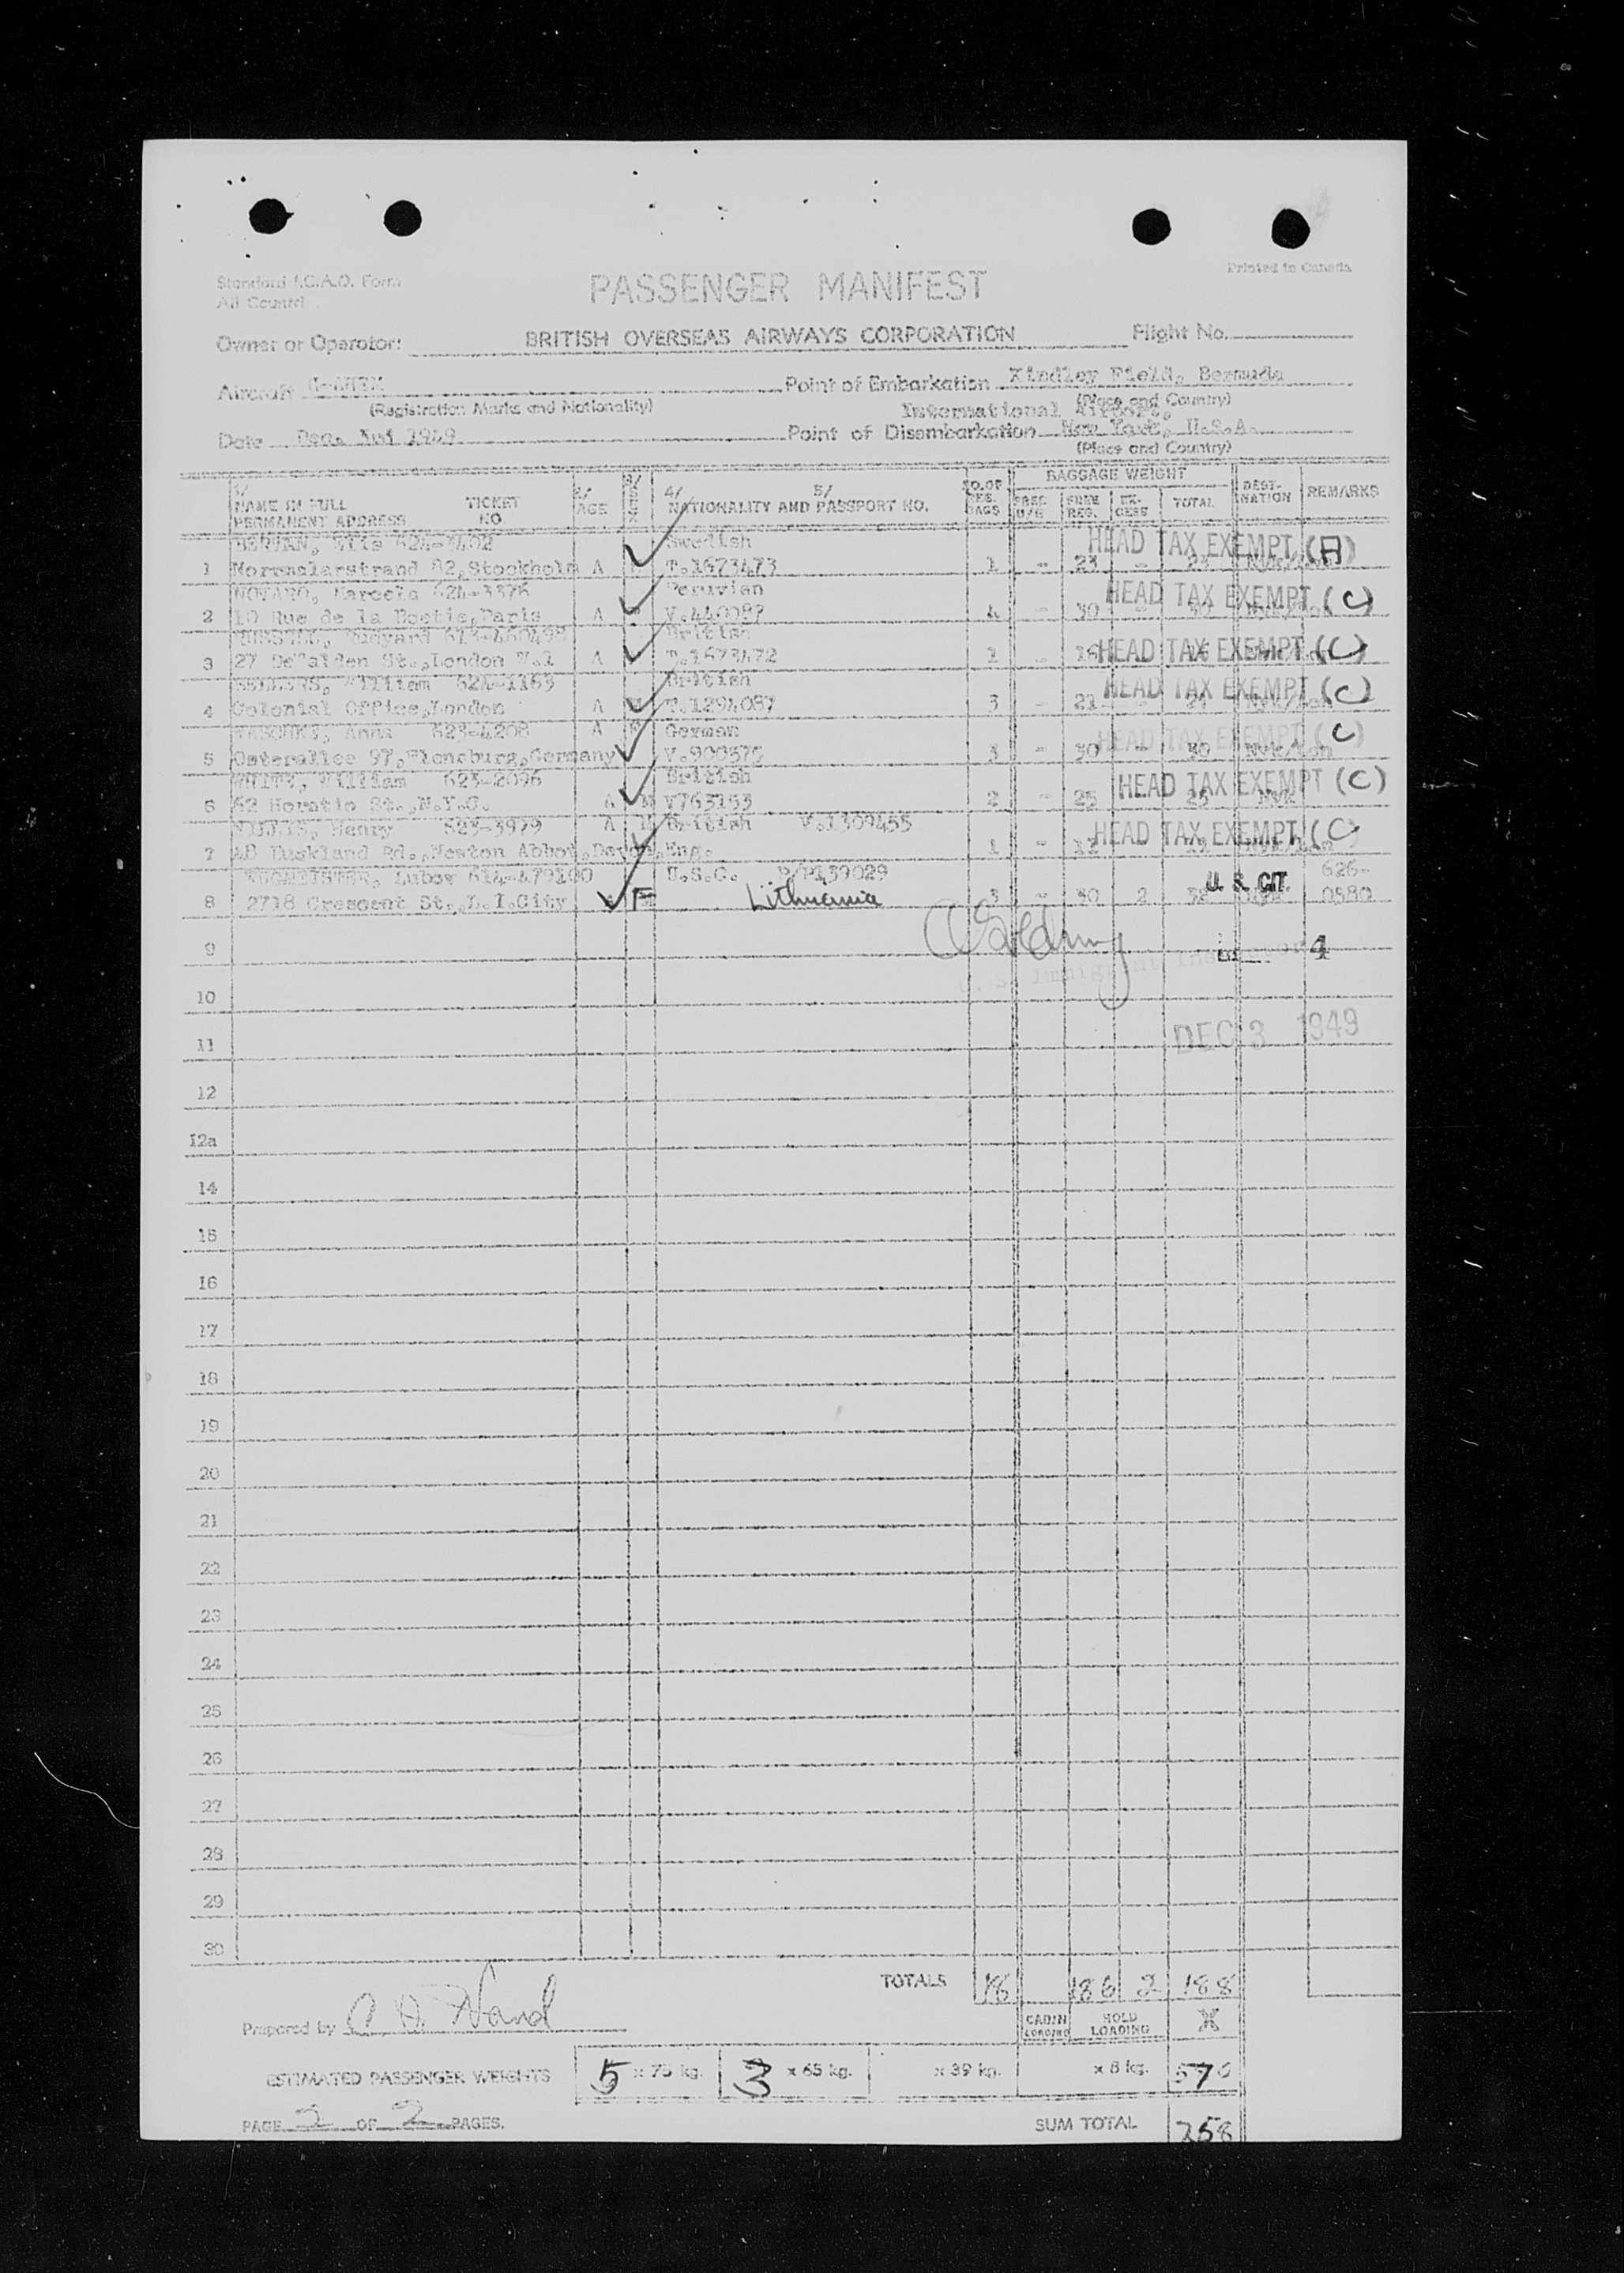 Standard I.C.A.O. Form
All Countri
PASSENGER MANIFEST
Printed in Canada
Owner or Operator: BRITISH OVERSEAS AIRWAYS CORPORATION Flight No.
Aircraft
Point of Embarkation Kindley Field, Bermuda
(Registration Marks and Nationality)
(Place and Country)
International Airport,
Date Dec. 1949
Point of Disembarkation New York, U.S.A.
(Place and Country)
1/ NAME IN FULL PERMANENT ADDRESS TICKET NO. 2/ AGE 3/ SEX 4/ 5/ NATIONALITY AND PASSPORT NO. NO. OF REG. BAGS BAGGAGE WEIGHT FREE U/R FREE REG. EX-CESS TOTAL DEST-INATION REMARKS
624-3402 Swedish HEAD TAX EXEMPT (A)
1 Norrmalarstrand 82, Stockholm A T.1673473 1 - 23 - 23
NOVARO, Marcela 624-3376 Peruvian HEAD TAX EXEMPT (C)
2 10 Rue de la Boetie, Paris A V.440087 4 - 30
613-460498 British
3 27 St., London W.1 A T.1673472 1 - 16 HEAD TAX EXEMPT (C)
William 624-1163 British HEAD TAX EXEMPT (C)
4 Colonial Office, London A T.1294087 3 - 21 - 21
Anna 623-4208 A German HEAD TAX EXEMPT (C)
5 Osterallee 97, Flensburg, Germany V.900575 3 - 30 - 30 Nyk/Lon
WHITE, William 623-2096 British HEAD TAX EXEMPT (C)
6 62 Horatio St., N.Y.C. A M V763153 2 - 25 25 Nyk
Henry 623-3979 A M British V.1309455 HEAD TAX EXEMPT (C)
7 Rd., Newton Abbot, Devon, Eng. 1 -
Lubow 614-479100 U.S.C. P/P139029 626-
8 2718 Crescent St., L.I. City F Lithuania 3 - 30 2 32 U. S. CIT. 0580
9 4
10
11 DEC 3 1949
12
12a
14
15
16
17
18
19
20
21
22
23
24
25
26
27
28
29
30
TOTALS 18 186 2 188
Prepared by
CABIN LOADING HOLD LOADING
ESTIMATED PASSENGER WEIGHTS 5 x 75 kg. 3 x 65 kg. x 39 kg. x 8 kg. 570
PAGE 2 OF 2 PAGES.
SUM TOTAL 758